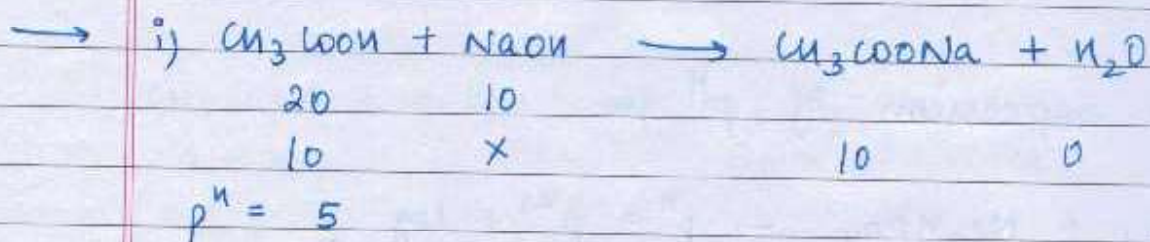 → i) CH₃COOH + NaOH → CH₃COONa + H₂O
20 10
10 × 10 0
pᴴ = 5